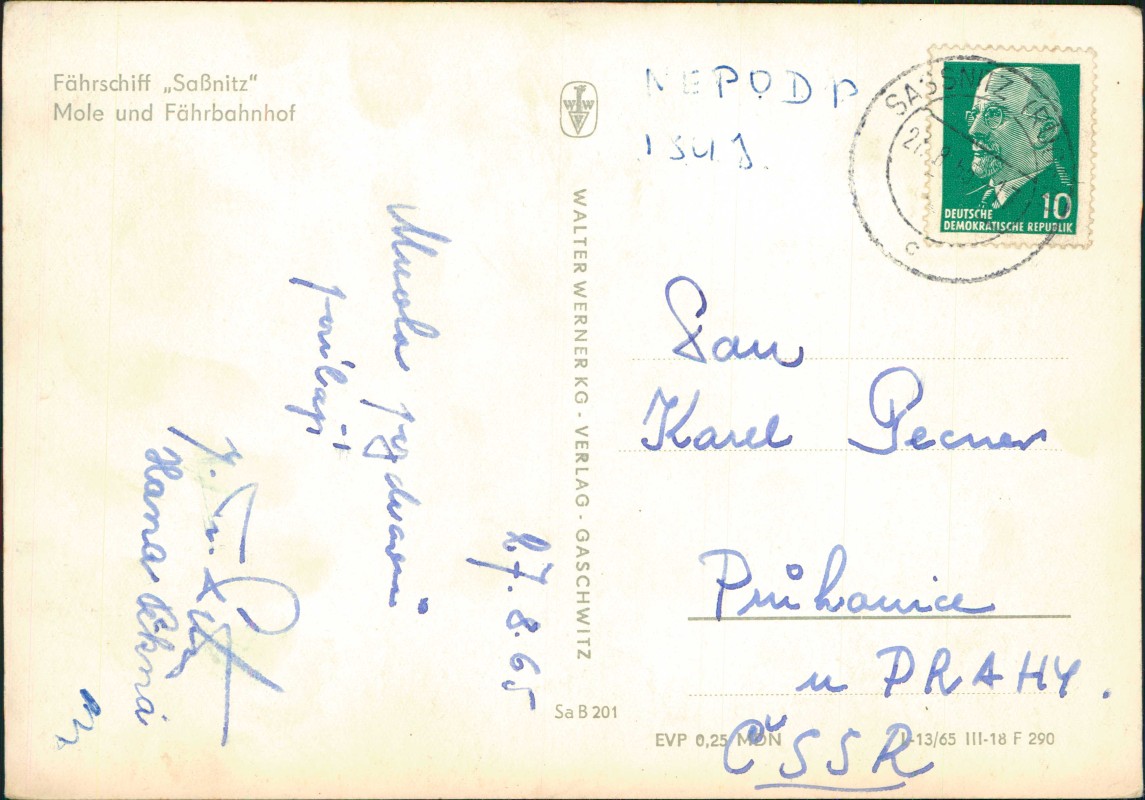 Fährschiff „Saßnitz“
Mole und Fährbahnhof
WW
NEPODP
SASSNITZ
c
10
DEUTSCHE
DEMOKRATISCHE REPUBLIK
WALTER WERNER KG · VERLAG · GASCHWITZ
27.8.65
Mnoho pozdravů
posílají
Hana
Pan
Karel Pecner
Průhonice
u PRAHY.
ČSSR
Sa B 201
EVP 0,25 MDN
I-13/65 III-18 F 290